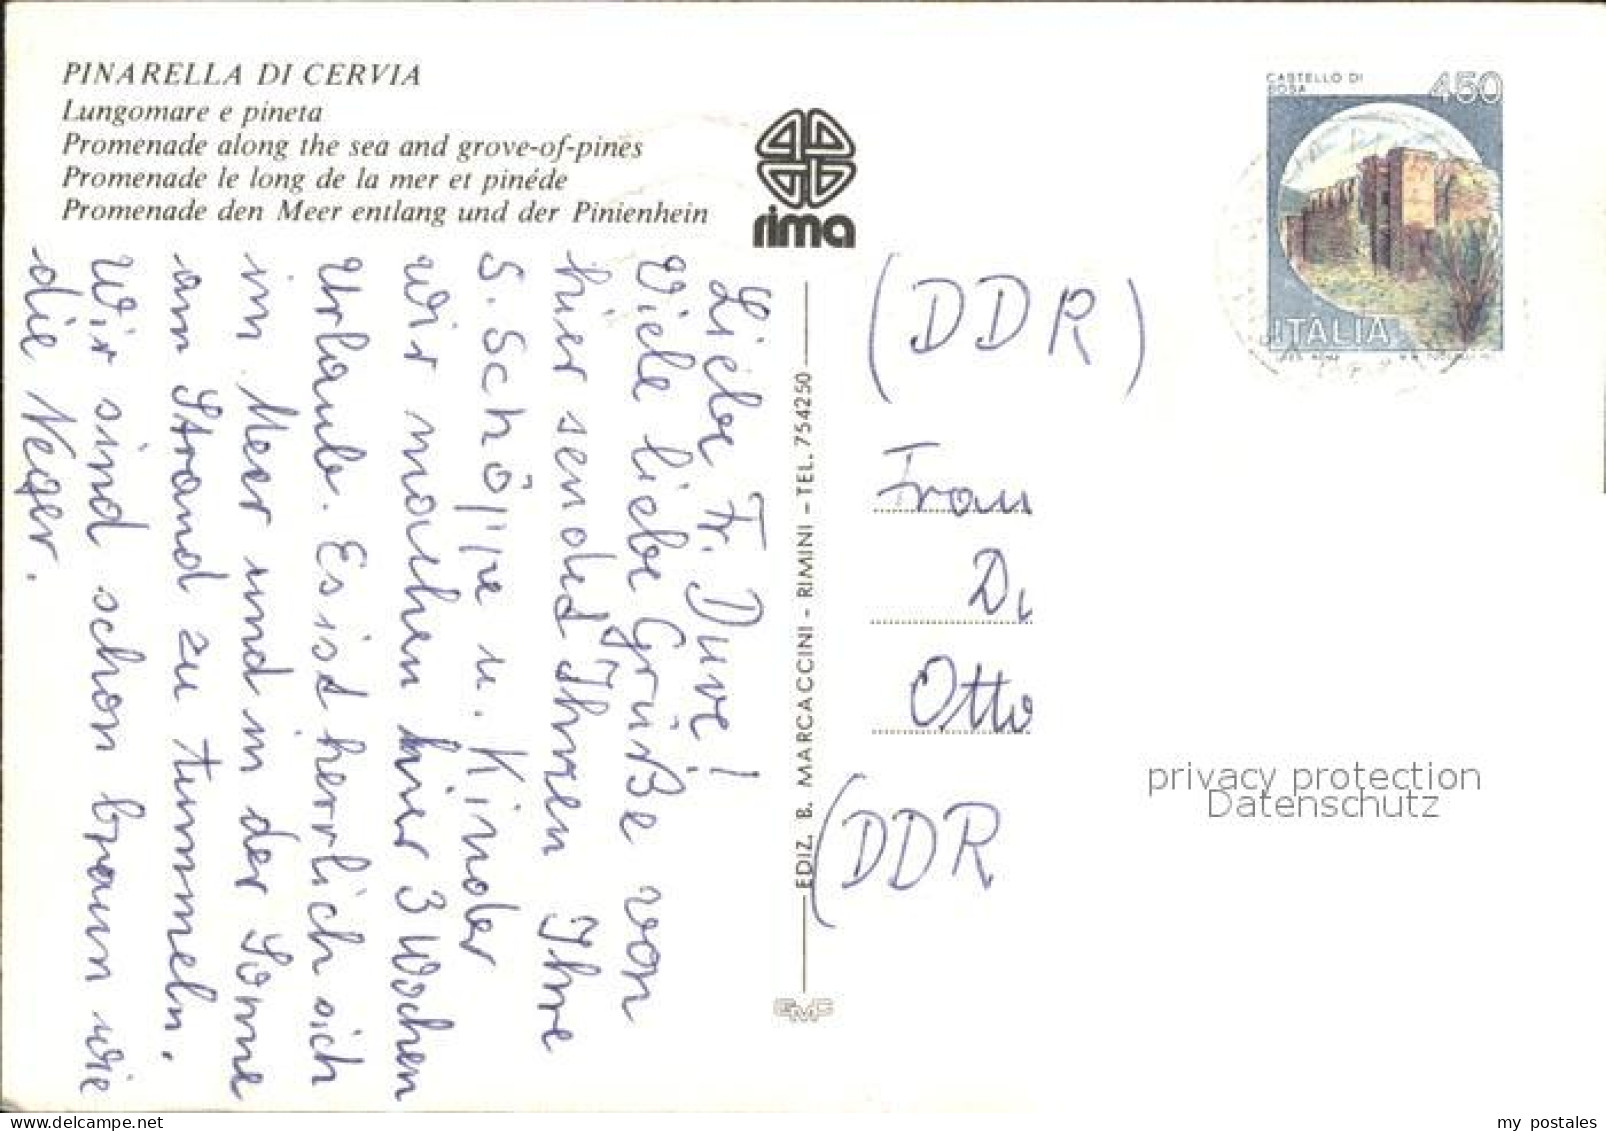 PINARELLA DI CERVIA
Lungomare e pineta
Promenade along the sea and grove-of-pines
Promenade le long de la mer et pinéde
Promenade den Meer entlang und der Pinienhein
rima
CASTELLO DI
BOSA
450
ITALIA
Liebe Fr. Duve!
Viele liebe Grüße von
hier sendet Ihnen Ihre
S. u. Kinder
wir machen hier 3 Wochen
Urlaub. Es ist herrlich sich
im Meer und in der Sonne
am Strand zu tummeln.
Wir sind schon braun wie
die Neger.
EDIZ. B. MARCACCINI - RIMINI - TEL. 754250
GMC
(DDR)
Frau
D.
Otto
(DDR
privacy protection
Datenschutz
my postales